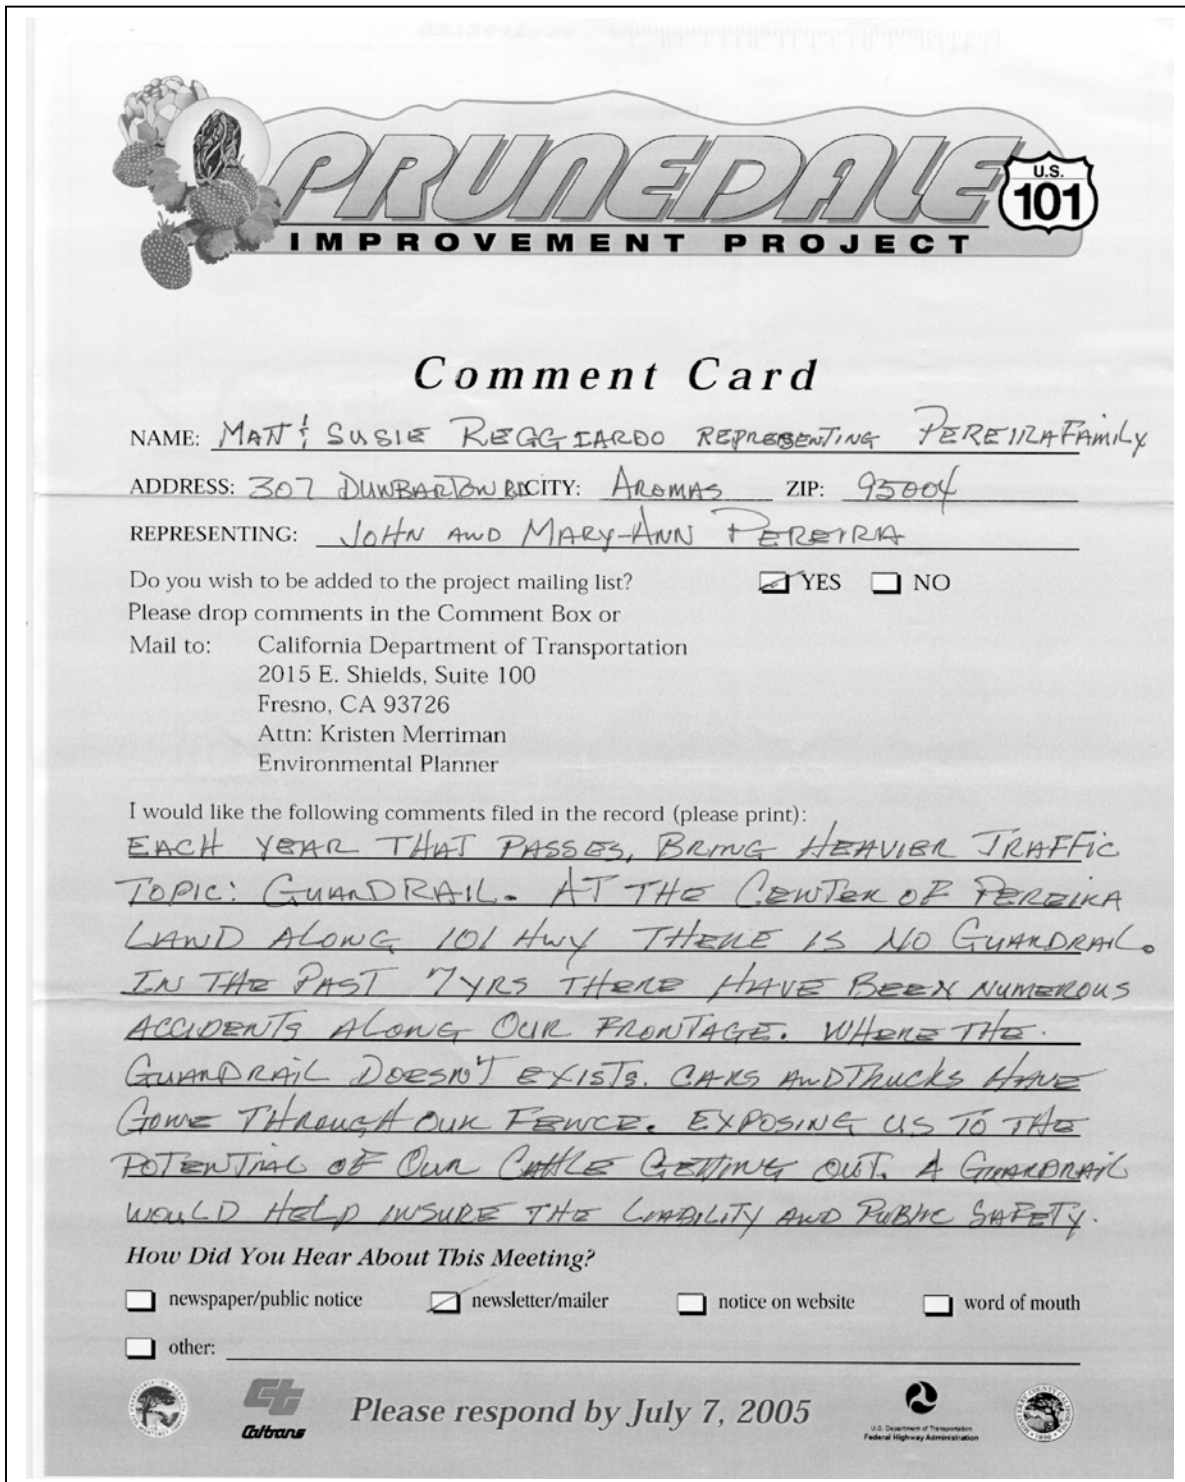 PRUNEDALE
U.S.
101
IMPROVEMENT PROJECT
Comment Card
NAME: MATT & SUSIE REGGIARDO REPRESENTING PEREIRA FAMILY
ADDRESS: 307 DUNBARTON RD CITY: AROMAS ZIP: 95004
REPRESENTING: JOHN AND MARY-ANN PEREIRA
Do you wish to be added to the project mailing list? YES NO
Please drop comments in the Comment Box or
Mail to: California Department of Transportation
2015 E. Shields, Suite 100
Fresno, CA 93726
Attn: Kristen Merriman
Environmental Planner
I would like the following comments filed in the record (please print):
EACH YEAR THAT PASSES, BRING HEAVIER TRAFFIC
TOPIC: GUARDRAIL. AT THE CENTER OF PEREIRA
LAND ALONG 101 HWY THERE IS NO GUARDRAIL.
IN THE PAST 7 YRS THERE HAVE BEEN NUMEROUS
ACCIDENTS ALONG OUR FRONTAGE. WHERE THE
GUARDRAIL DOESN'T EXISTS. CARS AND TRUCKS HAVE
GONE THROUGH OUR FENCE. EXPOSING US TO THE
POTENTIAL OF OUR CATTLE GETTING OUT. A GUARDRAIL
WOULD HELP INSURE THE LIABILITY AND PUBLIC SAFETY.
How Did You Hear About This Meeting?
newspaper/public notice newsletter/mailer notice on website word of mouth
other:
Caltrans
Please respond by July 7, 2005
U.S. Department of Transportation
Federal Highway Administration